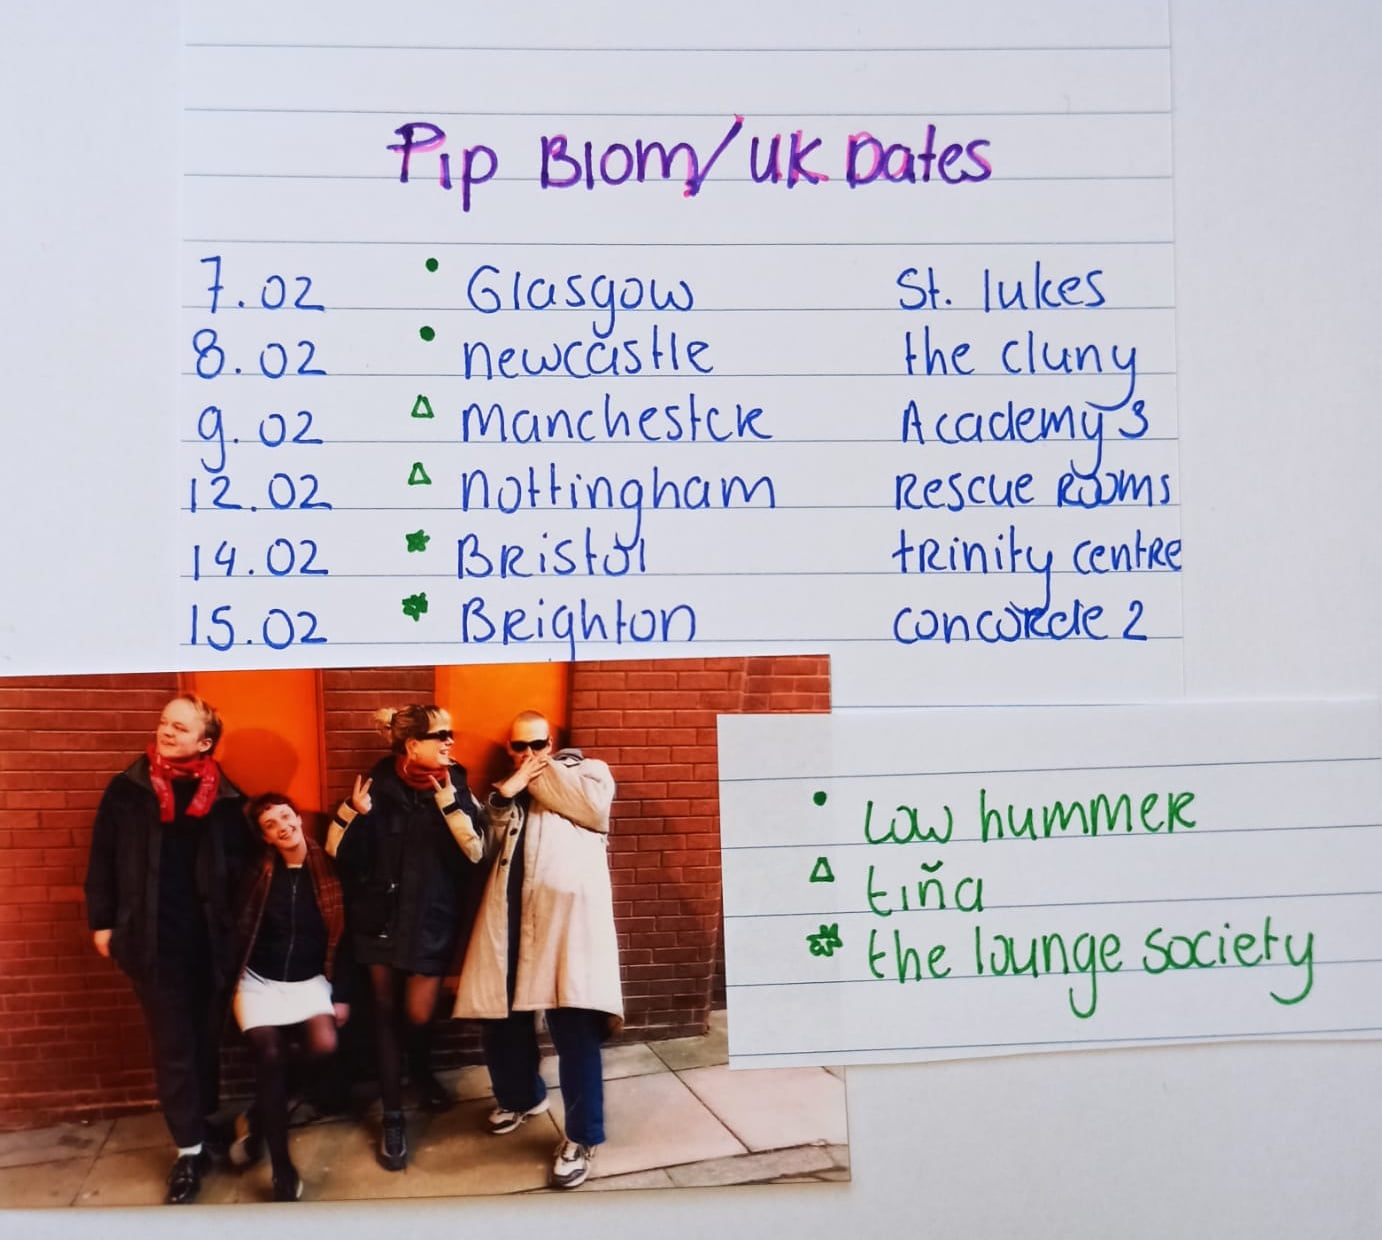 Pip Blom/UK Dates
7.02 • Glasgow St. lukes
8.02 • newcastle the cluny
9.02 △ Manchester Academy 3
12.02 △ nottingham Rescue Rooms
14.02 * Bristol tRinity centRe
15.02 * BRighton concoRde 2
• low hummeR
△ tiňa
* the lounge society